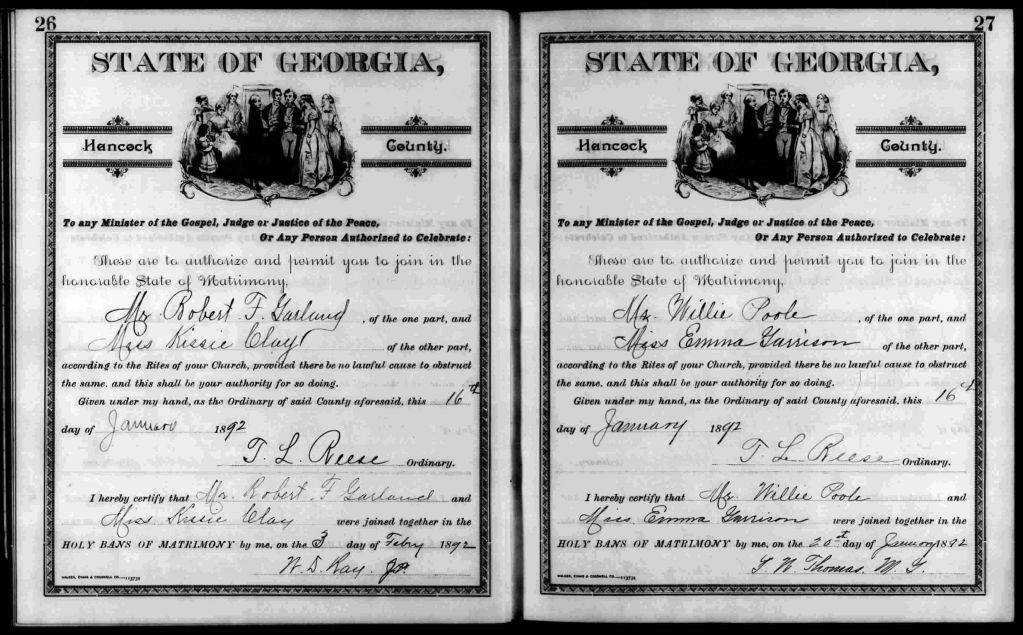 26
STATE OF GEORGIA,
Hancock County.
To any Minister of the Gospel, Judge or Justice of the Peace,
Or Any Person Authorized to Celebrate:
These are to authorize and permit you to join in the
honorable State of Matrimony,
Mr Robert F. Garland, of the one part, and
Miss Kissie Clay of the other part,
according to the Rites of your Church, provided there be no lawful cause to obstruct
the same, and this shall be your authority for so doing.
Given under my hand, as the Ordinary of said County aforesaid, this 16th
day of January 1892
T. L. Reese Ordinary.
I hereby certify that Mr. Robert F Garland and
Miss Kissie Clay were joined together in the
HOLY BANS OF MATRIMONY by me, on the 3 day of Febry 1892
W. D. Kay, J.P.
WALKER, EVANS & COGSWELL CO.—113734
27
STATE OF GEORGIA,
Hancock County.
To any Minister of the Gospel, Judge or Justice of the Peace,
Or Any Person Authorized to Celebrate:
These are to authorize and permit you to join in the
honorable State of Matrimony,
Mr. Willie Poole, of the one part, and
Miss Emma Garrison of the other part,
according to the Rites of your Church, provided there be no lawful cause to obstruct
the same, and this shall be your authority for so doing.
Given under my hand, as the Ordinary of said County aforesaid, this 16th
day of January 1892
T. L. Reese Ordinary.
I hereby certify that Mr. Willie Poole and
Miss Emma Garrison were joined together in the
HOLY BANS OF MATRIMONY by me, on the day of January 1892
Thomas. M. G.
WALKER, EVANS & COGSWELL CO.—113734